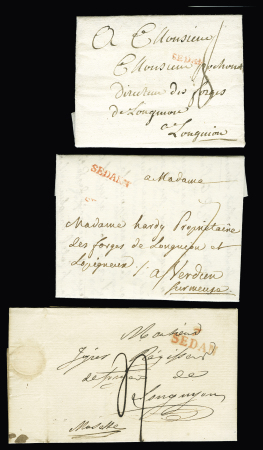 A Monsieur
SEDAN
Monsieur
Directeur des forges
de Longuion
a Longuion
SEDAN
a Madame
Madame hardy Propriétaire
des forges de Longuion et
Lopigneux /. a Verdun
sur meuse
Monsieur
SEDAN
Régisseur
de forges de
Longuyon
Moselle